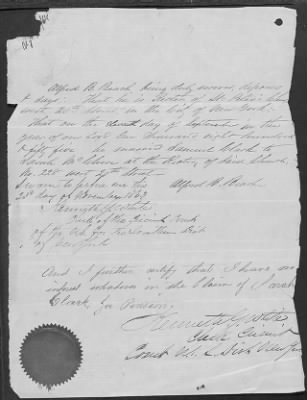 Alfred B. Beach being duly sworn, deposes
& says: That he is Rector of St. Peter's Church
West 20th Street, in the City of New York.
That on the eleventh day of September in the
year of our Lord One thousand eight hundred
& fifty five he married Samuel Clark to
Sarah at the Rectory of said Church,
No. 222 West 20th Street.
Sworn to before me this
25th day of November 1863
Alfred B. Beach
Kenneth G. White
Clerk of the Circuit Court
of the U.S. for the Southern Dist
of New York
And I further certify that I have no
interest whatever in the Claim of Sarah
Clark for Pension,
Kenneth G. White
Clerk Circuit
Court U.S. S. Dist New York